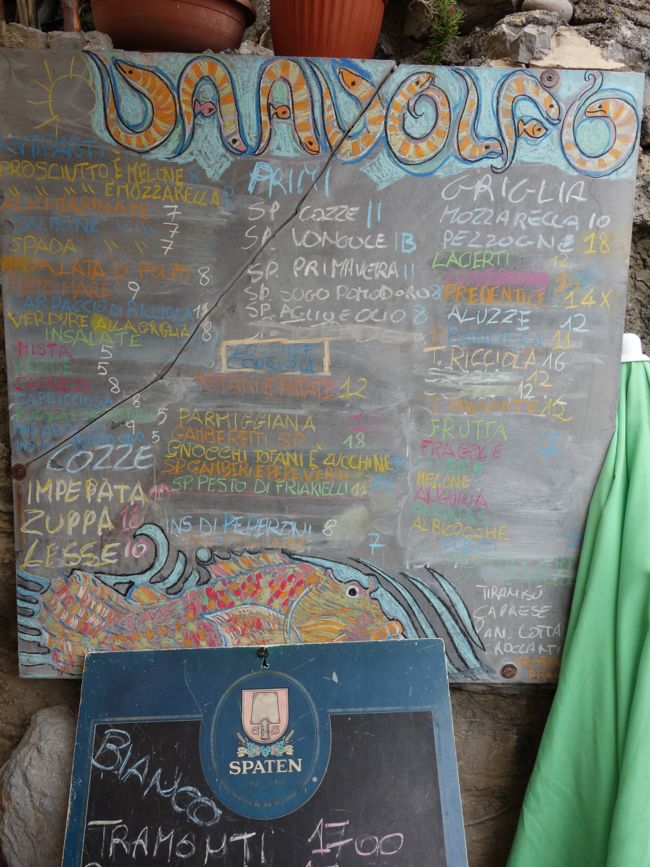 DA ADOLFO
ANTIPASTI
PROSCIUTTO E MELONE 8
" " " E MOZZARELLA 8
ALICI MARINATE 7
SALMONE " " 7
SPADA " " 7
INSALATA DI POLPO 8
MISTO MARE 9
CARPACCIO DI RICCIOLA
VERDURE ALLA GRIGLIA 8
INSALATE
MISTA 5
VERDE 5
CAPRESE 8
CAPRICCIOSA 8
COZZE
IMPEPATA 10
ZUPPA 10
LESSE 10
PRIMI
SP. COZZE 11
SP. VONGOLE 13
SP. PRIMAVERA 11
SP. SUGO POMODORO 8
SP. AGLIO E OLIO 8
TOTANI E PATATE 12
PARMIGGIANA
GAMBERETTI SP. 18
GNOCCHI TOTANI E ZUCCHINE
SP GAMBERI E PEPE VERDE
SP. PESTO DI FRIARIELLI 12
INS DI PEPERONI 8
7
GRIGLIA
MOZZARELLA 10
PEZZOGNE 18
LACERTI
PREDENTICE 14 X
ALUZZE 12
BANDIERA 11
T. RICCIOLA 16
12
12
T. PICCANTE 12
FRUTTA
FRAGOLE 7
MELONE
ANGURIA
ALBICOCCHE
DOLCI
TIRAMISÙ
CAPRESE
PAN. COTTA
CROCCANTI
SPATEN
BIANCO
TRAMONTI 17 00